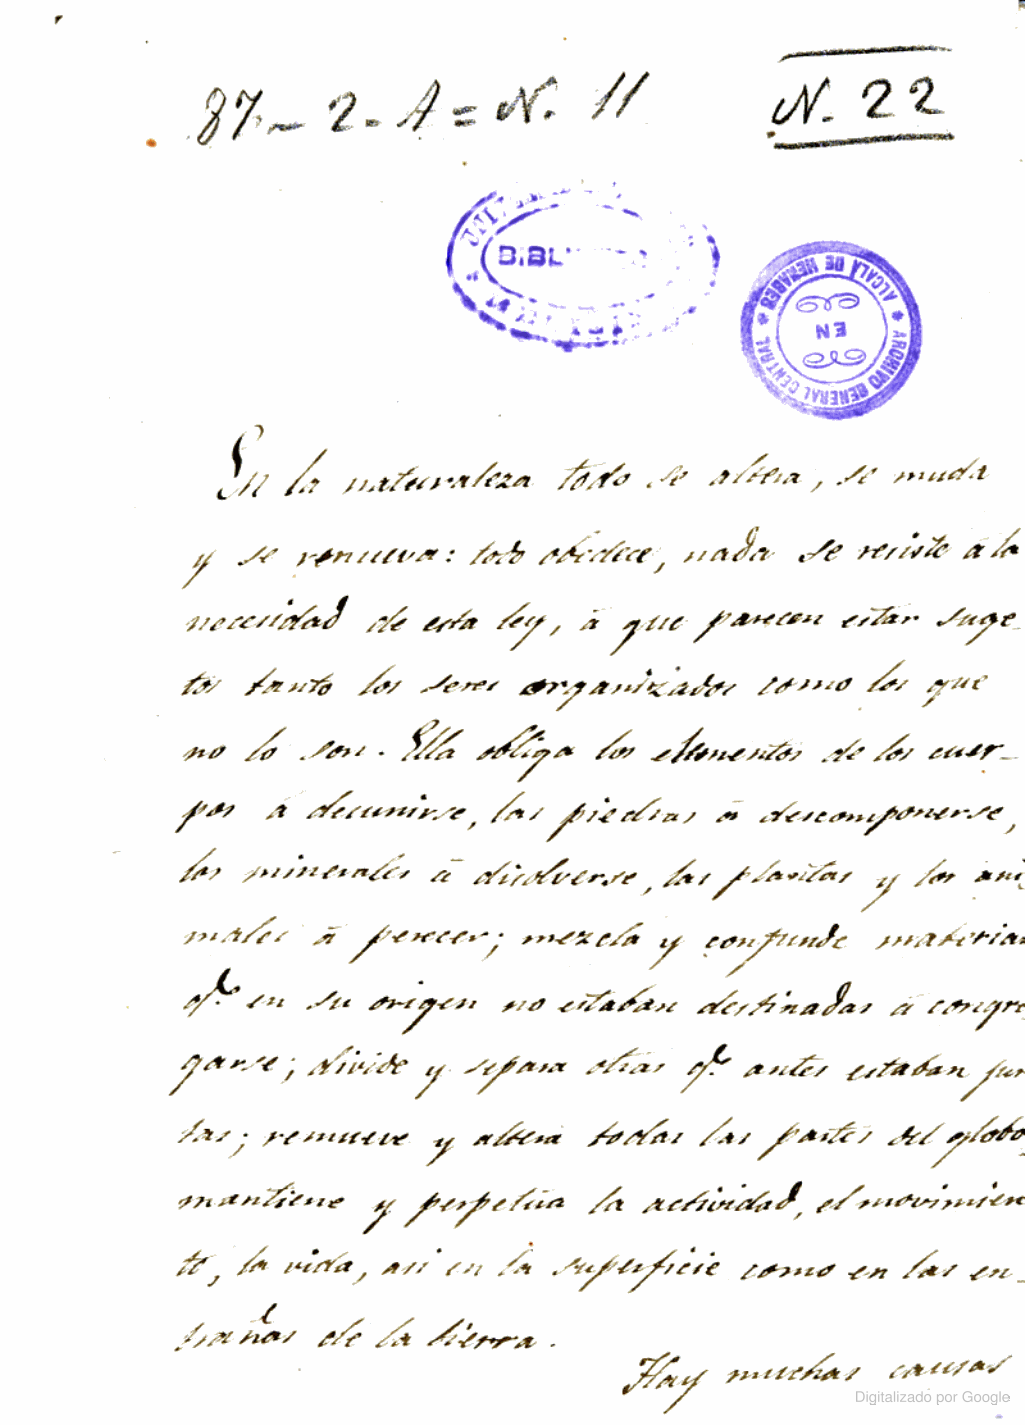 87.- 2 - A = N. 11
N. 22
BIBL
ARCHIVO GENERAL CENTRAL
EN
ALCALÁ DE HENARES
En la naturaleza todo se altera, se muda
y se renueva: todo obedece, nada se resiste á la
necesidad de esta ley, á que parecen estar suge-
tos tanto los seres organizados como los que
no lo son. Ella obliga los elementos de los cuer-
pos á desunirse, las piedras á descomponerse,
los minerales á disolverse, las plantas y los ani
males á perecer; mezcla y confunde materias
q.e en su origen no estaban destinadas á congre
garse; divide y separa otras q.e antes estaban jun
tas; remueve y altera todas las partes del globo,
mantiene y perpetúa la actividad, el movimien
to, la vida, asi en la superficie como en las en-
trañas de la tierra.
Hay muchas causas
Digitalizado por Google